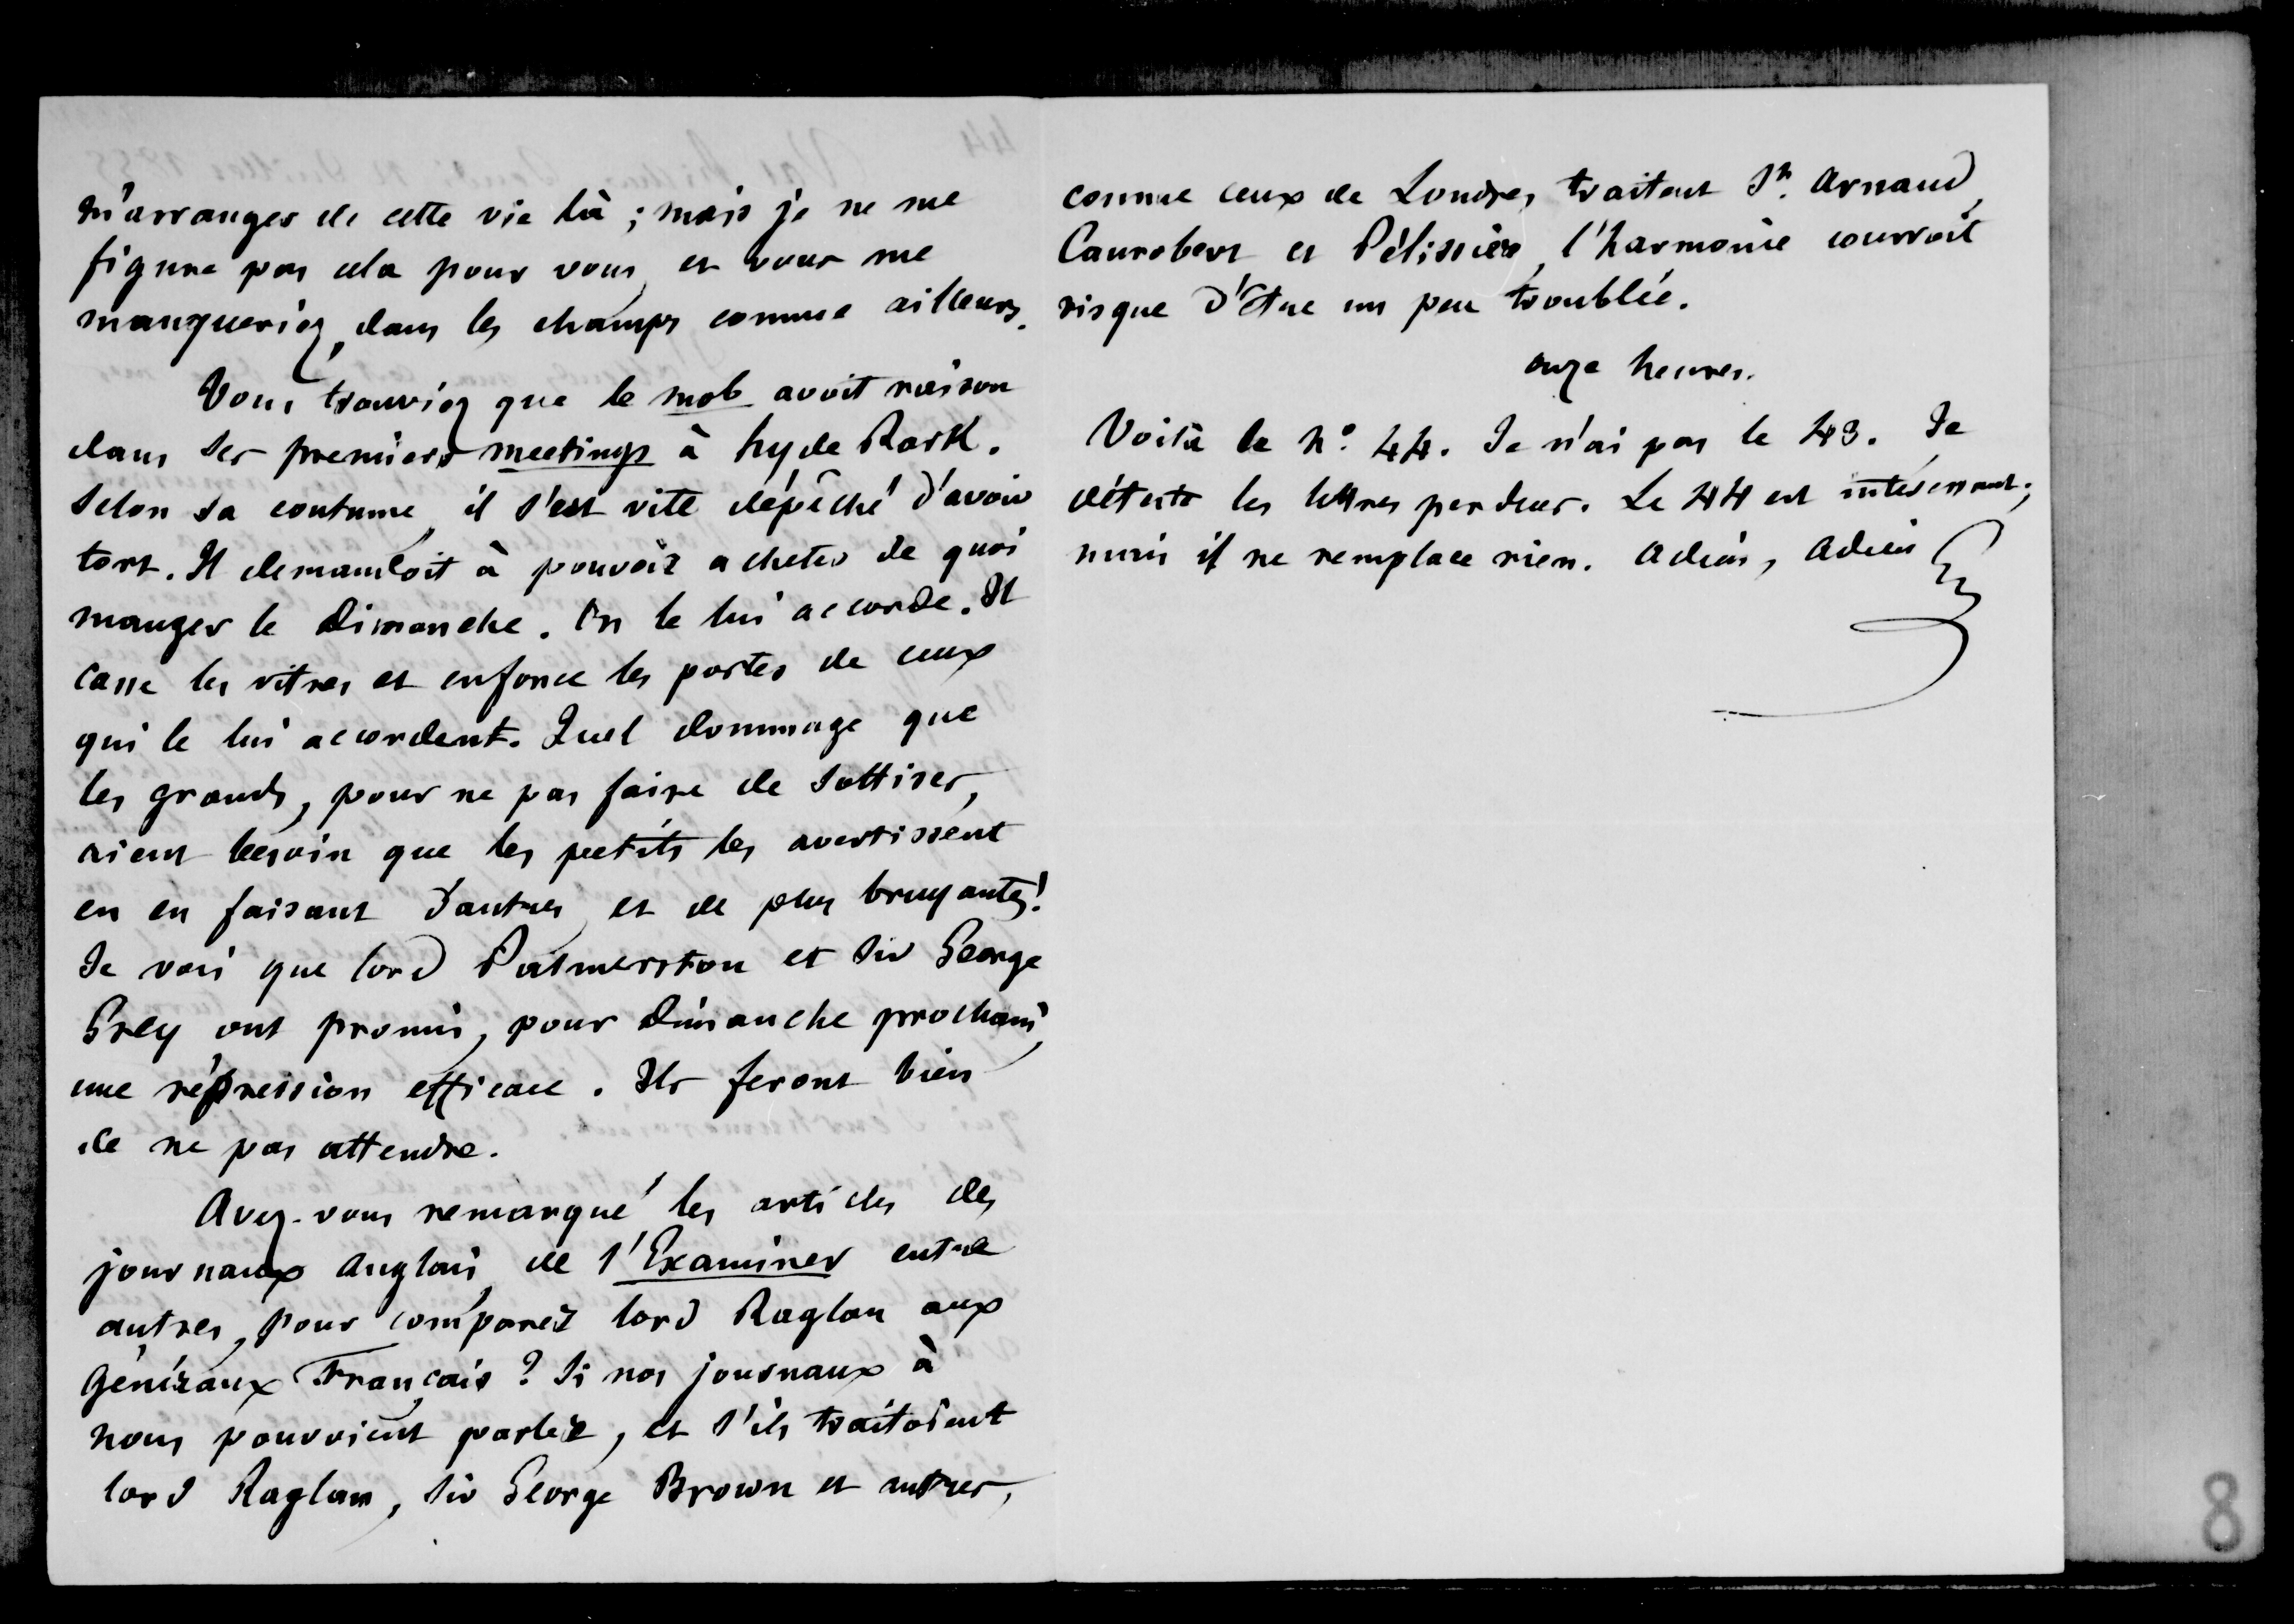 m'arranger de cette vie là ; mais je ne me
figure pas cela pour vous, et vous me
manqueriez, dans les champs comme ailleurs.
Vous trouviez que le mob avoit raison
dans ses premiers meetings à hyde Park.
Selon sa coutume, il s'est vite dépêché d'avoir
tort. Il demandoit à pouvoir acheter de quoi
manger le Dimanche. On le lui accorde. Il
casse les vitres et enfonce les portes de ceux
qui le lui accordent. Quel dommage que
les grands, pour ne pas faire de sottises,
aient besoin que les petits les avertissent
en en faisant d'autres, et de plus bruyantes !
Je vois que lord Palmerston et Sir George
Grey ont promis, pour dimanche prochain,
une répression efficace. Ils feront bien
de ne pas attendre.
Avez-vous remarqué les articles des
journaux Anglais, de l'Examiner entre
autres, pour comparer lord Raglan aux
Généraux Français ? Si nos journaux à
nous pouvoient parler, et s'ils traitoient
lord Raglan, Sir George Brown et autres,
comme ceux de Londres traitent St. Arnaud,
Canrobert et Pélissier, l'harmonie courroit
risque d'être un peu troublée.
onze heures.
Voilà le No. 44. Je n'ai pas le 43. Je
déteste les lettres perdues. Le 44 est intéressant ;
mais il ne remplace rien. Adieu, Adieu
8